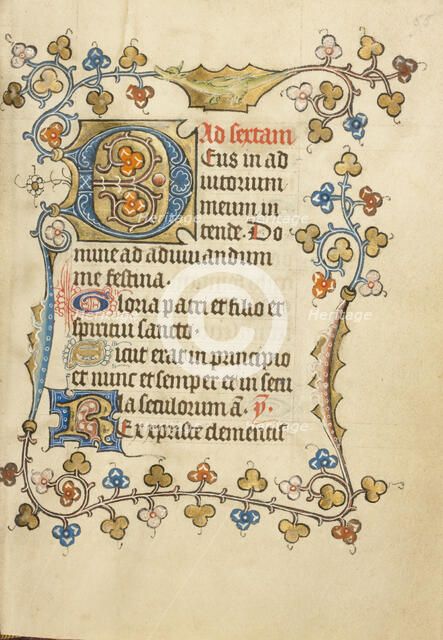 55
Ad sextam
Deus in ad
iutorium
meum in
tende. Do
mine ad adiuuandum
me festina.
Gloria patri et filio et
spiritui sancto.
Sicut erat in principio
et nunc et semper et in secu
la seculorum a. ps.
Rex xpriste clementis
Heritage
Heritage
Heritage
Heritage
Heritage
Heritage